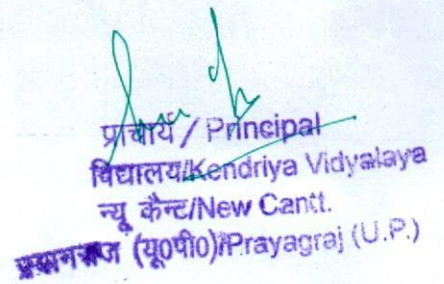 प्राचार्य / Principal
विद्यालय/Kendriya Vidyalaya
न्यू कैन्ट/New Cantt.
(यू०पी०)/Prayagraj (U.P.)